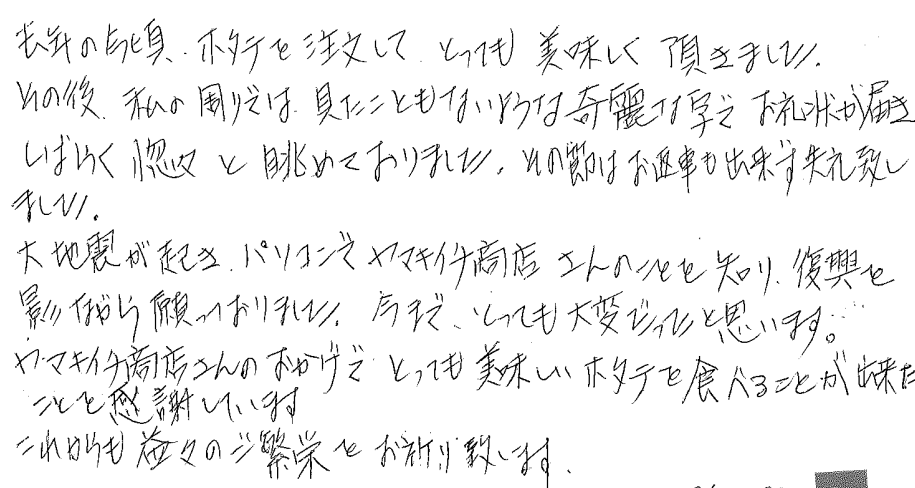 去年の今頃、ホタテを注文して、とっても美味しく頂きました。
その後、私の周りでは、見たこともないような奇麗な字でお礼状が届き
しばらく惚々と眺めておりました。その節はお返事も出来ず失礼致し
ました。
大地震が起き、パソコンでヤマキイチ商店さんのことを知り、復興を
影ながら願っておりました。今まで、とっても大変だったと思います。
ヤマキイチ商店さんのおかげでとっても美味しいホタテを食べることが出来た
ことを感謝しています
これからも益々のご繁栄をお祈り致します。